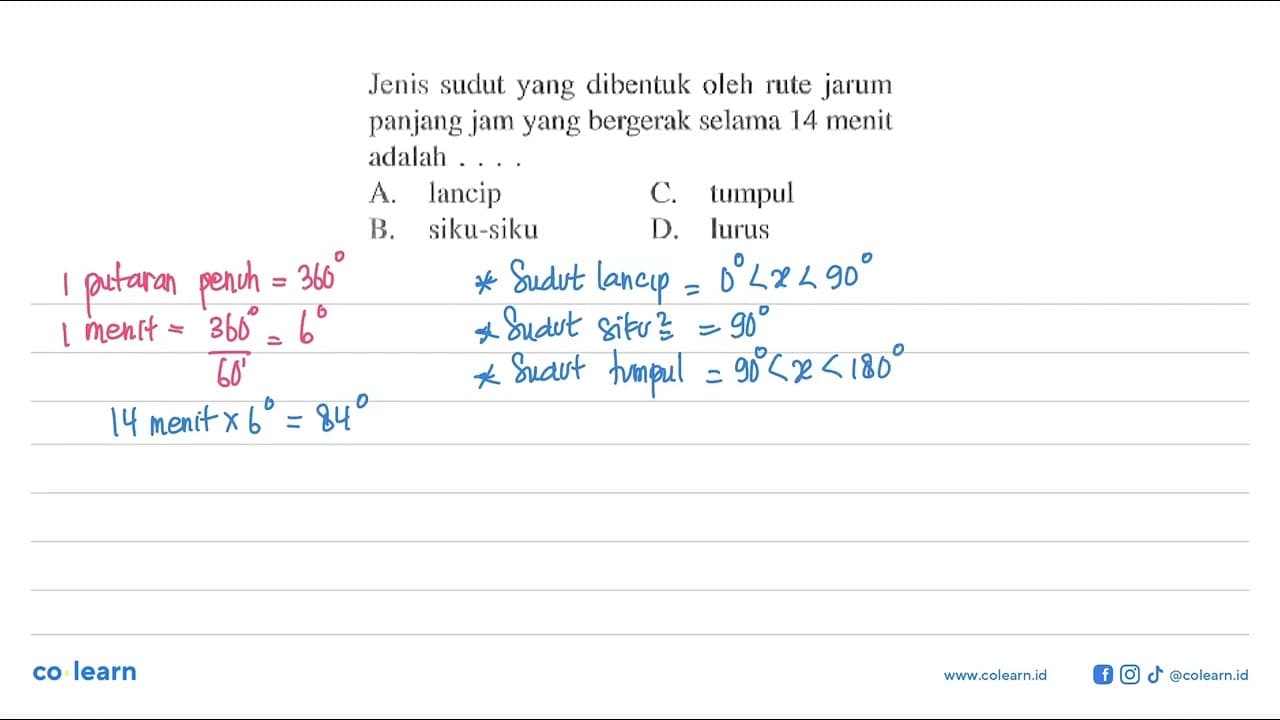 Jenis sudut yang dibentuk oleh rute jarum
panjang jam yang bergerak selama 14 menit
adalah . . . .
A. lancip C. tumpul
B. siku-siku D. lurus
1 putaran penuh = 360°
1 menit = 360°/60' = 6°
14 menit x 6° = 84°
* Sudut lancip = 0° < x < 90°
* Sudut siku2 = 90°
* Sudut tumpul = 90° < x < 180°
co learn
www.colearn.id
@colearn.id